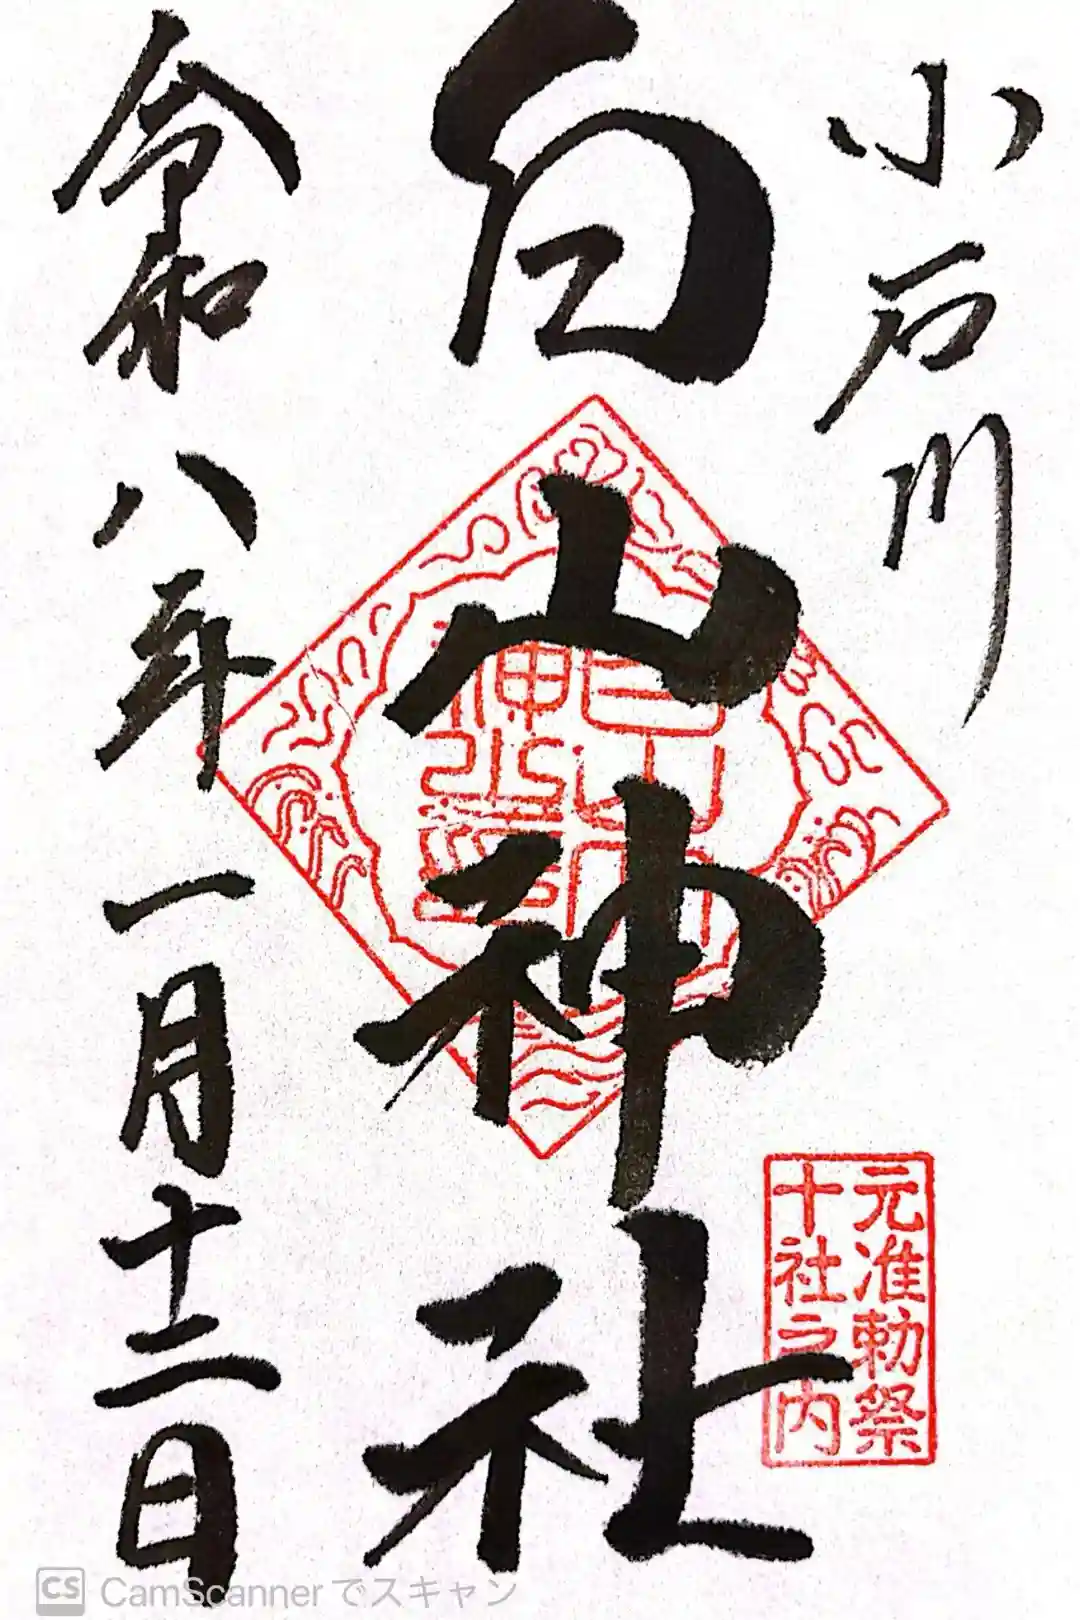 小石川
白山神社
令和八年一月十二日
元准勅祭
十社之内
CS CamScannerでスキャン